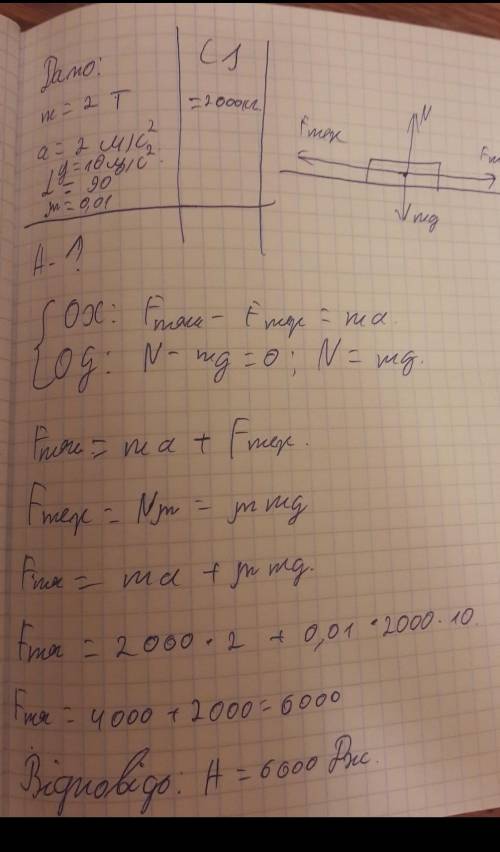 Дано:
СІ
m = 2 Т
= 2000кг
a = 2 м/с²
g = 10м/с².
L = 90
μ = 0,01
A - ?
N
Fтер
Fт
mg
OX: Fтяги - Fтер = ma.
OY: N - mg = 0; N = mg.
Fтяги = ma + Fтер.
Fтер = Nμ = μmg
Fтя = ma + μmg.
Fтя = 2000 · 2 + 0,01 · 2000 · 10
Fтя = 4000 + 2000 = 6000
Відповідь: A = 6600 Дж.